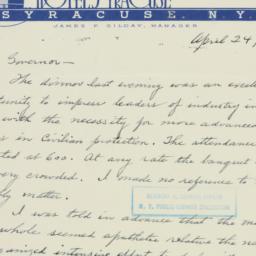 HOTEL SYRACUSE
SYRACUSE, N.Y.
JAMES F. GILDAY, MANAGER
April 24,
Governor—
The dinner last evening was an excel
tunity to impress leaders of industry in
with the necessity for more advanced
s in Civilian protection. The attendance
ted at 600. At any rate the banquet
very crowded. I made no reference to
ly matter.
I was told in advance that the me
whole seemed apathetic relative the ne
ganized intensive effort to